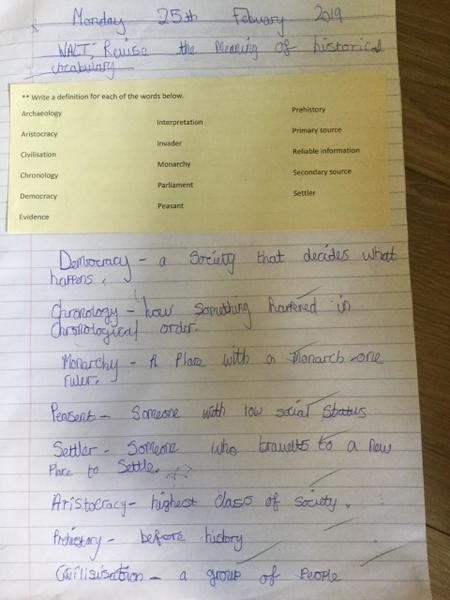 Monday 25th Febuary 2019
WALT; Revise the Meaning of historical
vocabulary
** Write a definition for each of the words below.
Archaeology
Aristocracy
Civilisation
Chronology
Democracy
Evidence
Interpretation
Invader
Monarchy
Parliament
Peasant
Prehistory
Primary source
Reliable information
Secondary source
Settler
Democracy - a Society that decides what
happens.
Chronology - how Something happened in
Chronological order.
Monarchy - A Place with a Monarch - one
ruler.
Peasent - Someone with low social Status
Settler - Someone who travells to a new
Place to Settle.
Aristocracy - highest class of society.
Prehistory - before history
Civilisisation - a group of People